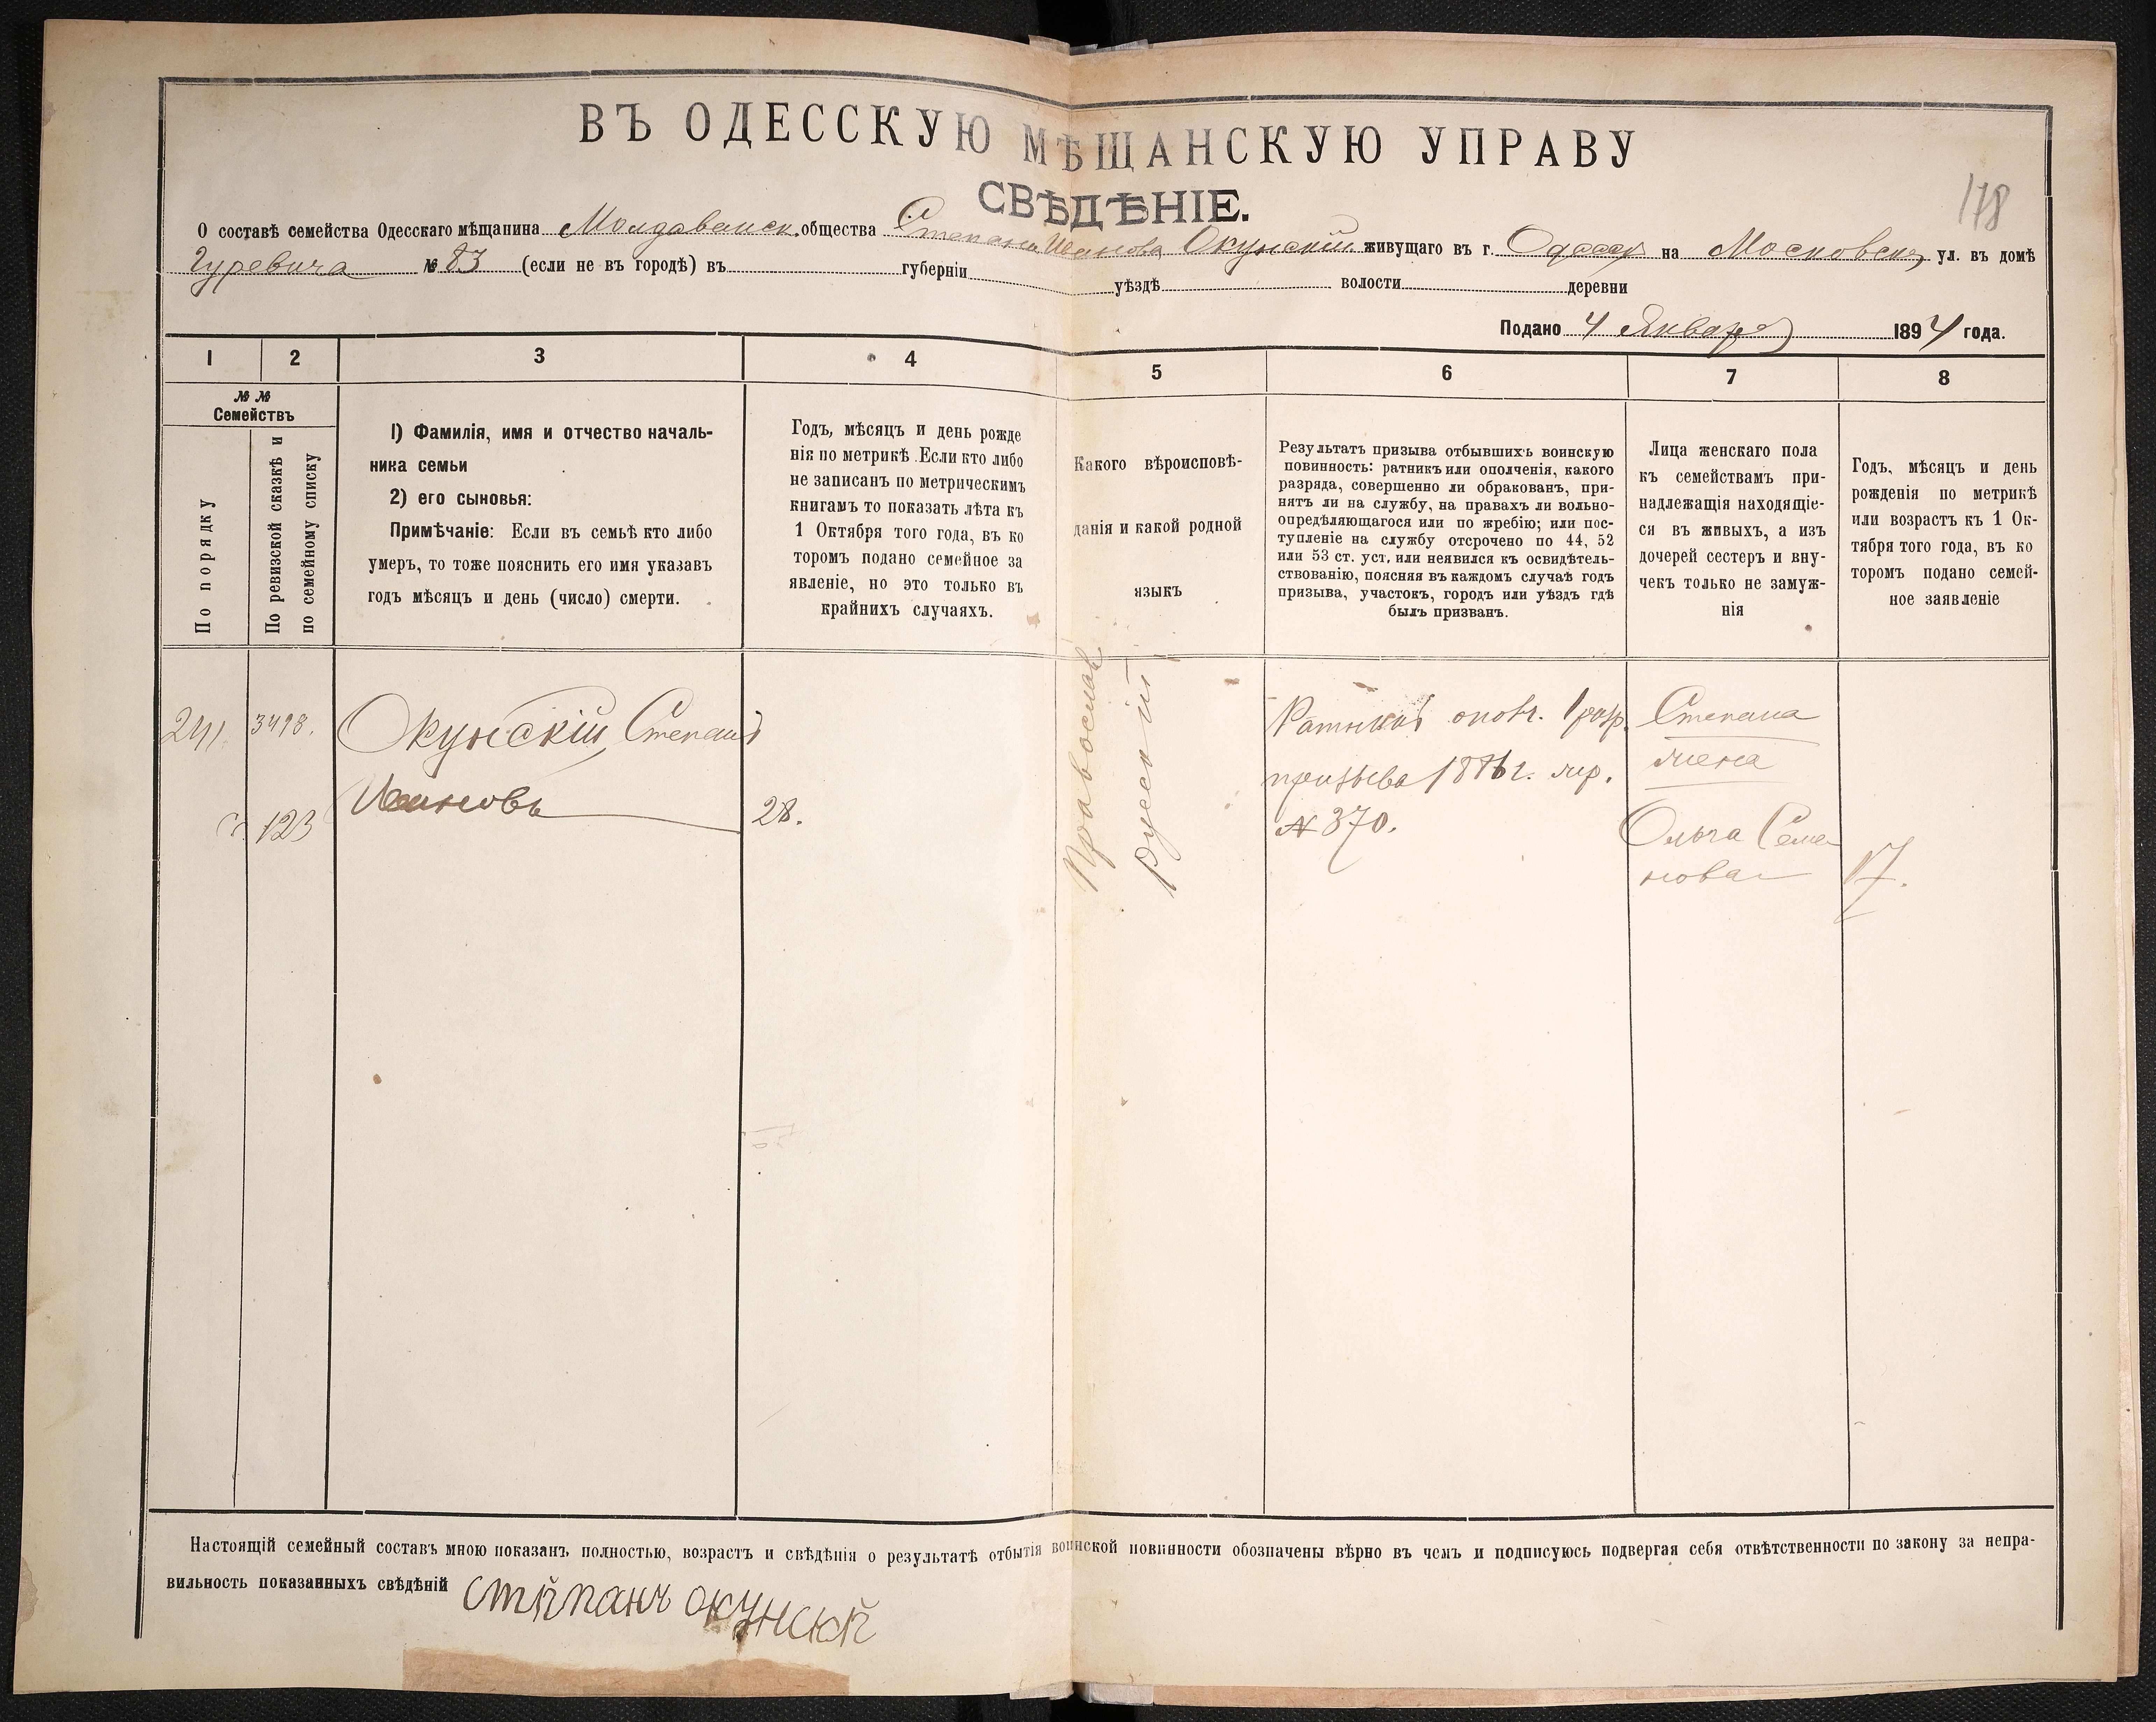 ВЪ ОДЕССКУЮ МѢЩАНСКУЮ УПРАВУ
СВѢДѢНІЕ.
178
О составѣ семейства Одесскаго мѣщанина Молдаванск. общества Степана Иванова Окунскій живущаго въ г. Одессѣ на Московск, ул. въ домѣ
Гуревича № 83 (если не въ городѣ) въ губерніи уѣздѣ волости деревни
Подано 4 Января 1894 года.
1 2 3 4 5 6 7 8
№ №
Семействъ
По порядку
По ревизской сказкѣ и
по семейному списку
1) Фамилія, имя и отчество началь-
ника семьи
2) его сыновья:
Примѣчаніе: Если въ семьѣ кто либо
умеръ, то тоже пояснить его имя указавъ
годъ мѣсяцъ и день (число) смерти.
Годъ, мѣсяцъ и день рожде
нія по метрикѣ. Если кто либо
не записанъ по метрическимъ
книгамъ то показать лѣта къ
1 Октября того года, въ ко
торомъ подано семейное за
явленіе, но это только въ
крайнихъ случаяхъ.
Какого вѣроисповѣ-
данія и какой родной
языкъ
Результатъ призыва отбывшихъ воинскую
повинность: ратникъ или ополченія, какого
разряда, совершенно ли обракованъ, при-
нятъ ли на службу, на правахъ ли вольно-
опредѣляющагося или по жребію; или пос-
тупленіе на службу отсрочено по 44, 52
или 53 ст. уст, или неявился къ освидѣтель-
ствованію, поясняя въ каждомъ случаѣ годъ
призыва, участокъ, городъ или уѣздъ гдѣ
былъ призванъ.
Лица женскаго пола
къ семействамъ при-
надлежащія находящіе-
ся въ живыхъ, а изъ
дочерей сестеръ и вну-
чекъ только не замуж-
нія
Годъ, мѣсяцъ и день
рожденія по метрикѣ
или возрастъ къ 1 Ок-
тября того года, въ ко
торомъ подано семей-
ное заявленіе
241. 3498.
123
Окунскій Степанъ
Ивановъ
28.
Православ
Русскій
Ратникъ опол. 1 разр.
призыва 1886 г. жр.
№ 370.
Степана
жена
Ольга Семе
новая
17.
Настоящій семейный составъ мною показанъ полностью, возрастъ и свѣдѣнія о результатѣ отбытія воинской повинности обозначены вѣрно въ чемъ и подписуюсь подвергая себя отвѣтственности по закону за непра-
вильность показанныхъ свѣдѣній